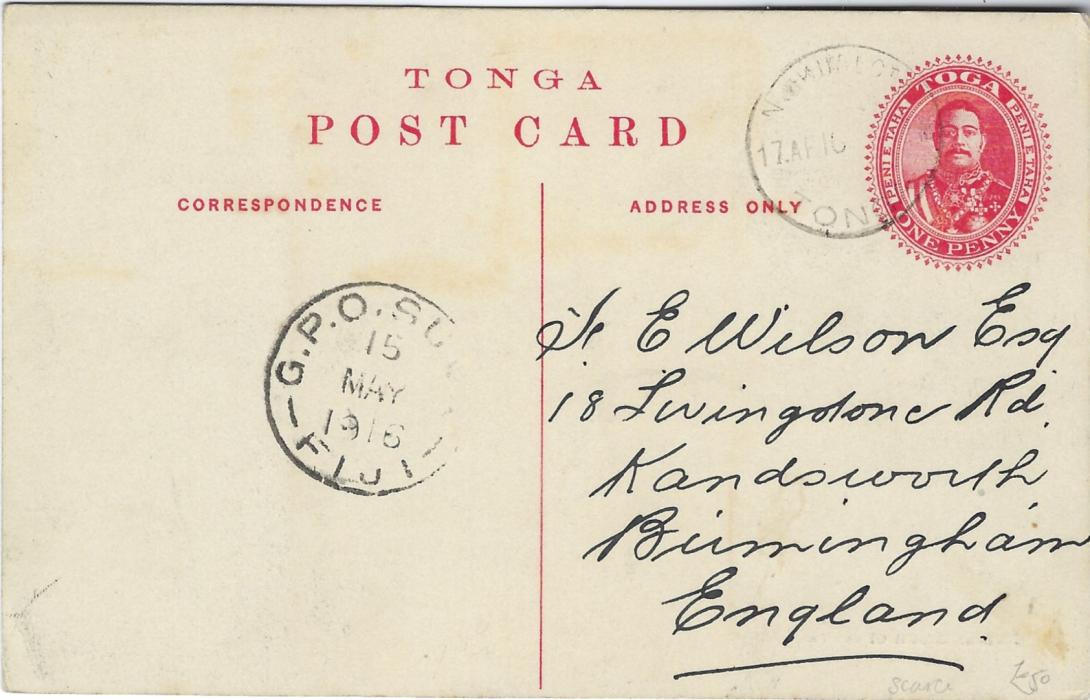 TONGA
POST CARD
CORRESPONDENCE
ADDRESS ONLY
TOGA
PENI E TAHA
PENI E TAHA
ONE PENNY
17.AP.16
G.P.O.
15
MAY
1916
FIJI
E Wilson Esq
18 Livingstone Rd.
Handsworth
Birmingham
England
scarce
£50